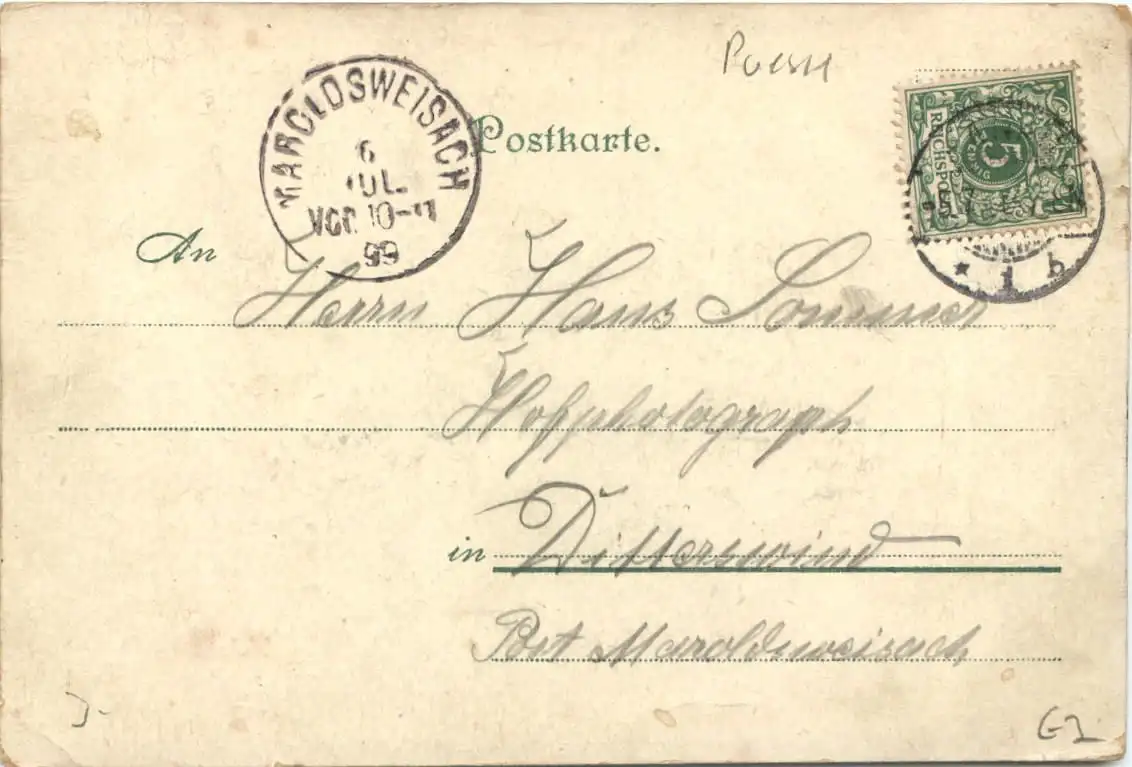 MAROLDSWEISACH
6
JUL.
VOR. 10-11
99
Postkarte.
5
PFENNIG
REICHSPOST
* 1 b
An
Herrn Hans Sommer
Hofphotograph
in Ditterswind
Post Maroldsweisach
G2